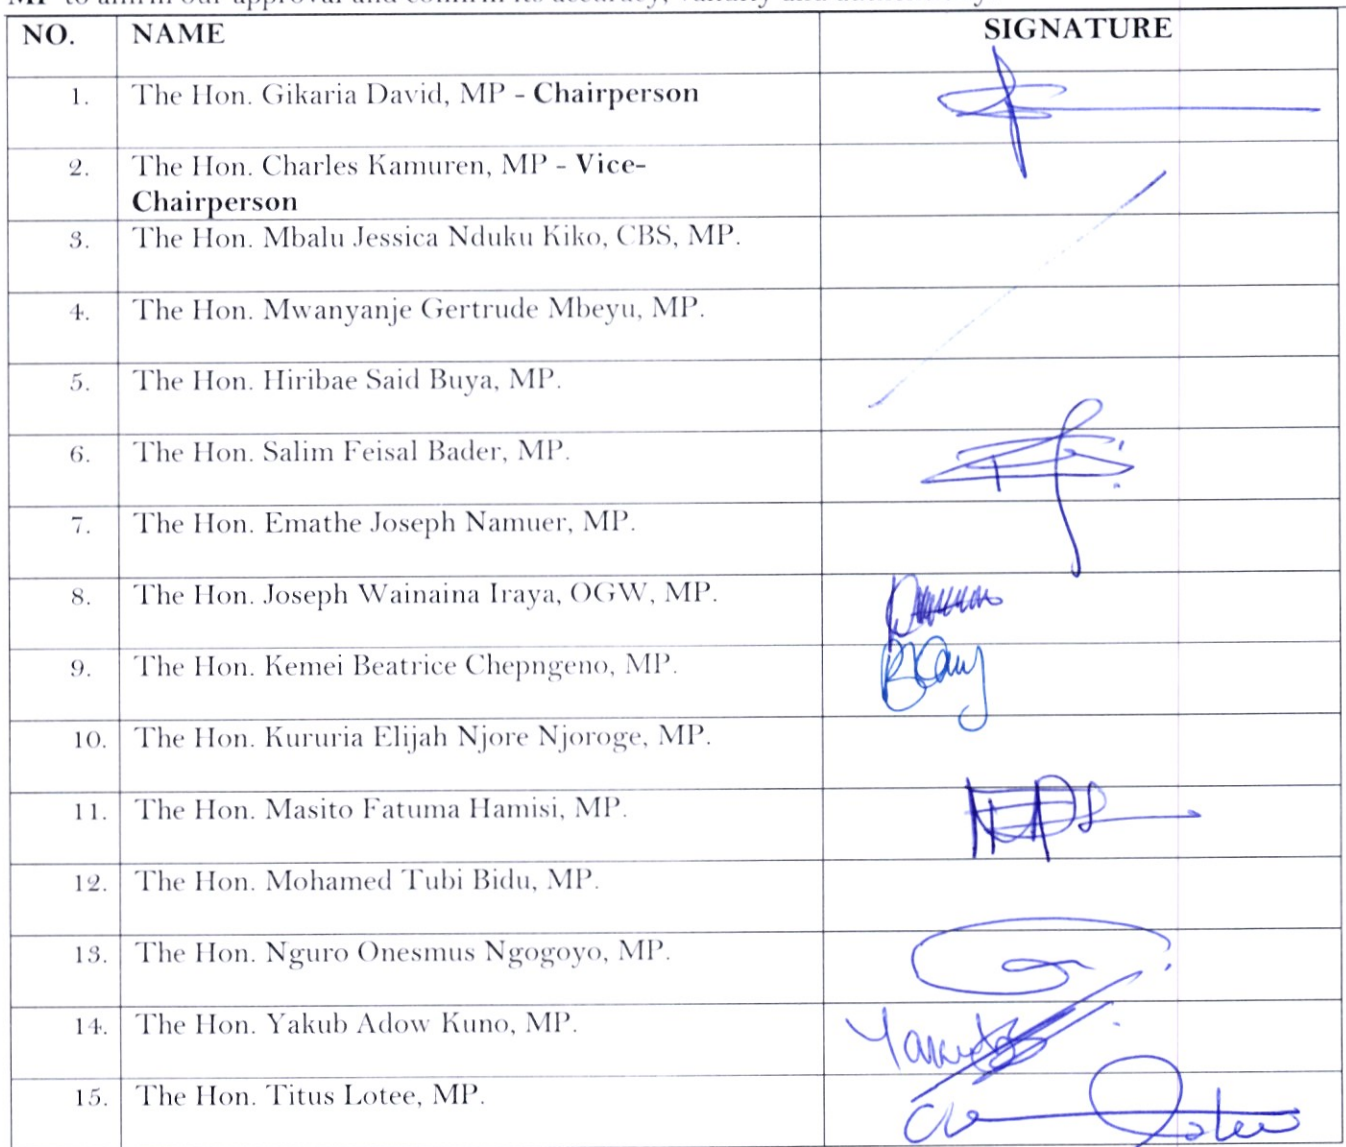 NO. NAME SIGNATURE
1. The Hon. Gikaria David, MP - Chairperson
2. The Hon. Charles Kamuren, MP - Vice-
Chairperson
3. The Hon. Mbalu Jessica Nduku Kiko, CBS, MP.
4. The Hon. Mwanyanje Gertrude Mbeyu, MP.
5. The Hon. Hiribae Said Buya, MP.
6. The Hon. Salim Feisal Bader, MP.
7. The Hon. Emathe Joseph Namuer, MP.
8. The Hon. Joseph Wainaina Iraya, OGW, MP.
9. The Hon. Kemei Beatrice Chepngeno, MP.
10. The Hon. Kururia Elijah Njore Njoroge, MP.
11. The Hon. Masito Fatuma Hamisi, MP.
12. The Hon. Mohamed Tubi Bidu, MP.
13. The Hon. Nguro Onesmus Ngogoyo, MP.
14. The Hon. Yakub Adow Kuno, MP.
15. The Hon. Titus Lotee, MP.